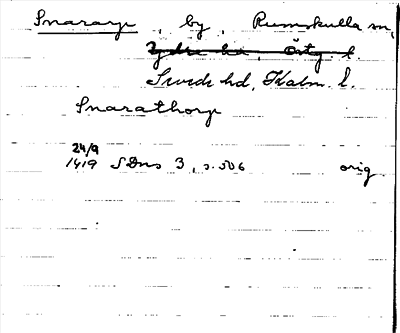 Snararp, by, Rumskulla sn,
Ydre hd, Östg. l.
Sevede hd, Kalm. l.
Snarathorp
24/9
1419 SDns 3, s. 506 orig